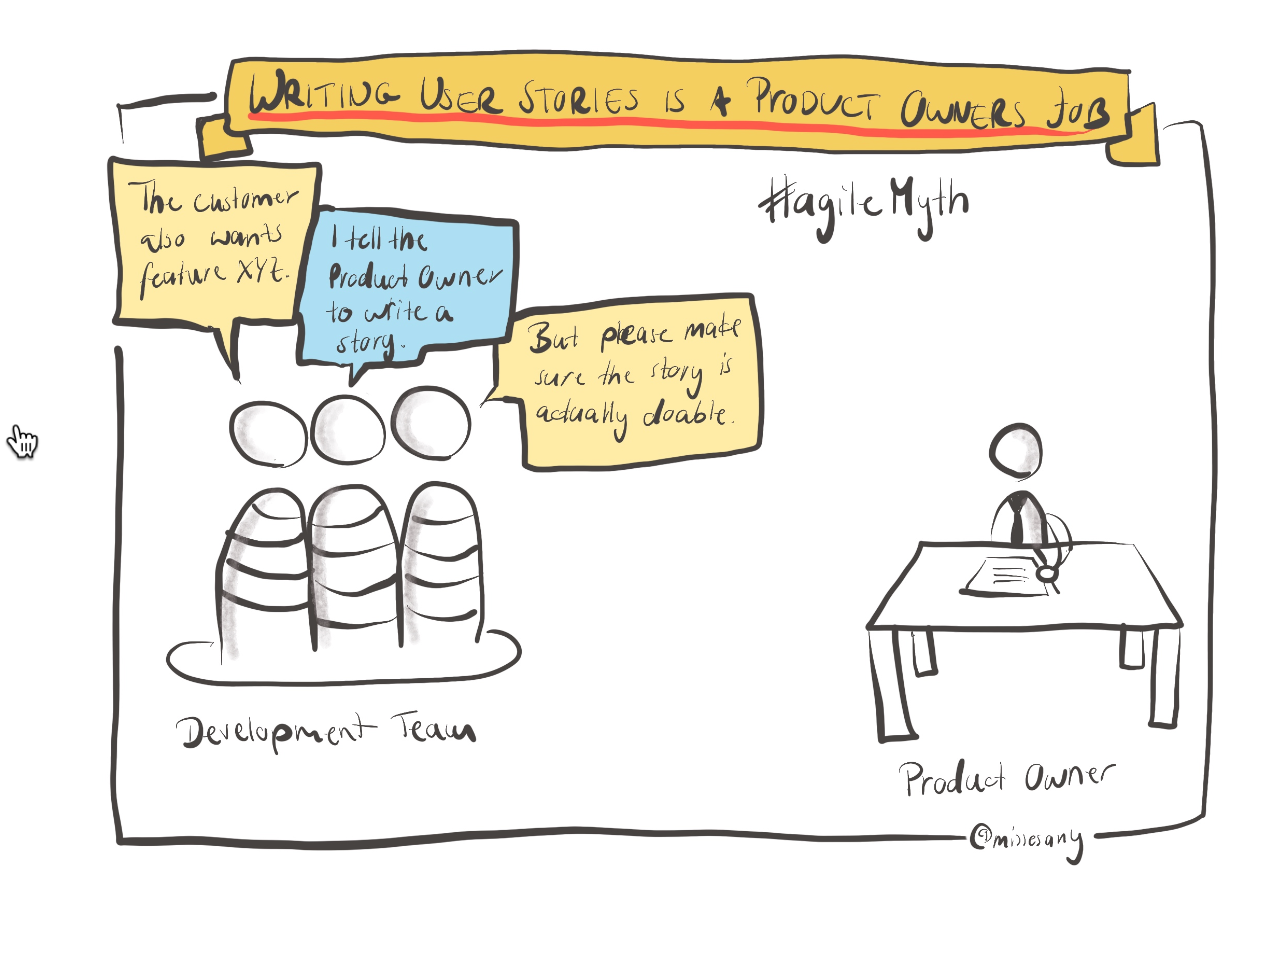 WRITING USER STORIES IS A PRODUCT OWNERS JOB
#agileMyth
The customer
also wants
feature XYZ.
I tell the
Product Owner
to write a
story.
But please make
sure the story is
actually doable.
Development Team
Product Owner
@missesany